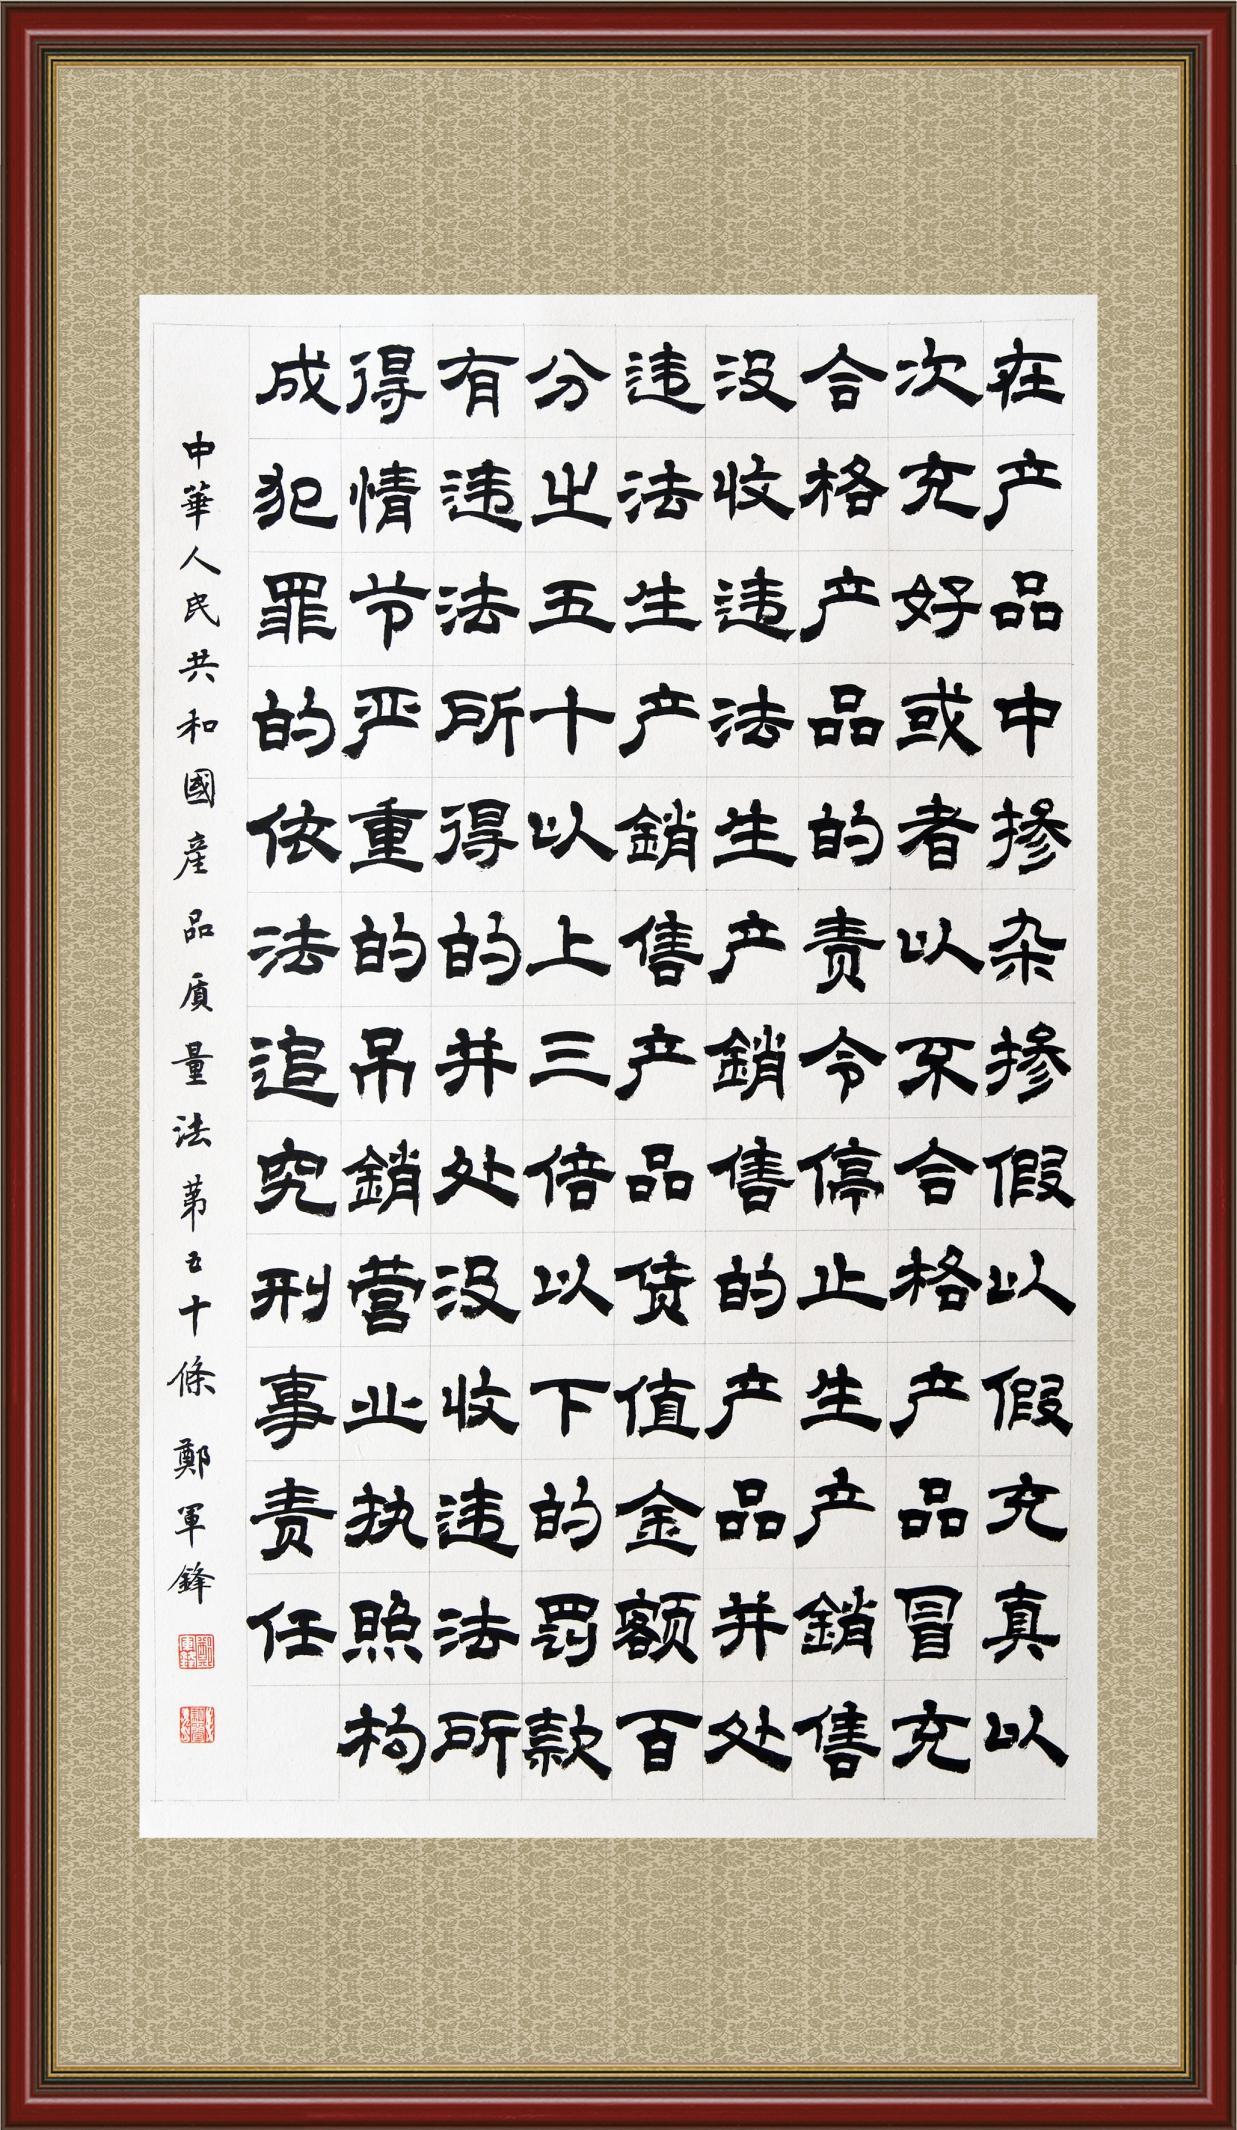 在产品中掺杂掺假以假充真以
次充好或者以不合格产品冒充
合格产品的责令停止生产銷售
没收违法生产銷售的产品并处
违法生产銷售产品货值金额百
分之五十以上三倍以下的罚款
有违法所得的并处没收违法所
得情节严重的吊銷营业执照构
成犯罪的依法追究刑事责任
中華人民共和國産品质量法第五十條 鄭軍鋒